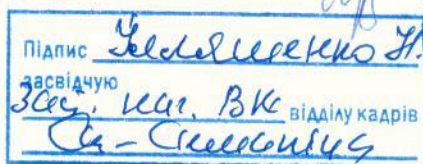 Підпис Ілляшенко Н.
засвідчую
Зас. нач. ВК відділу кадрів